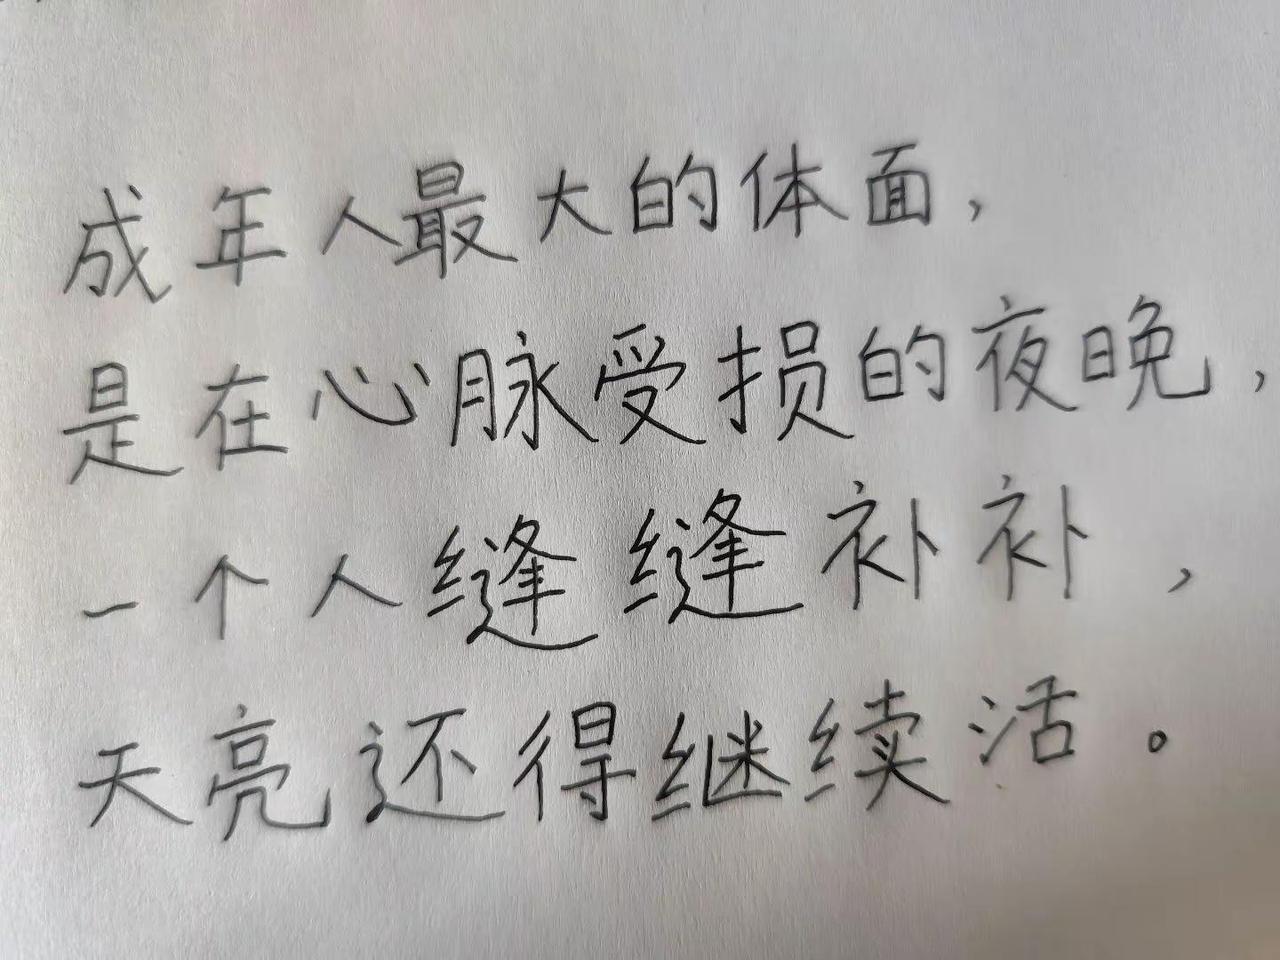 成年人最大的体面，
是在心脉受损的夜晚，
一个人缝缝补补，
天亮还得继续活。